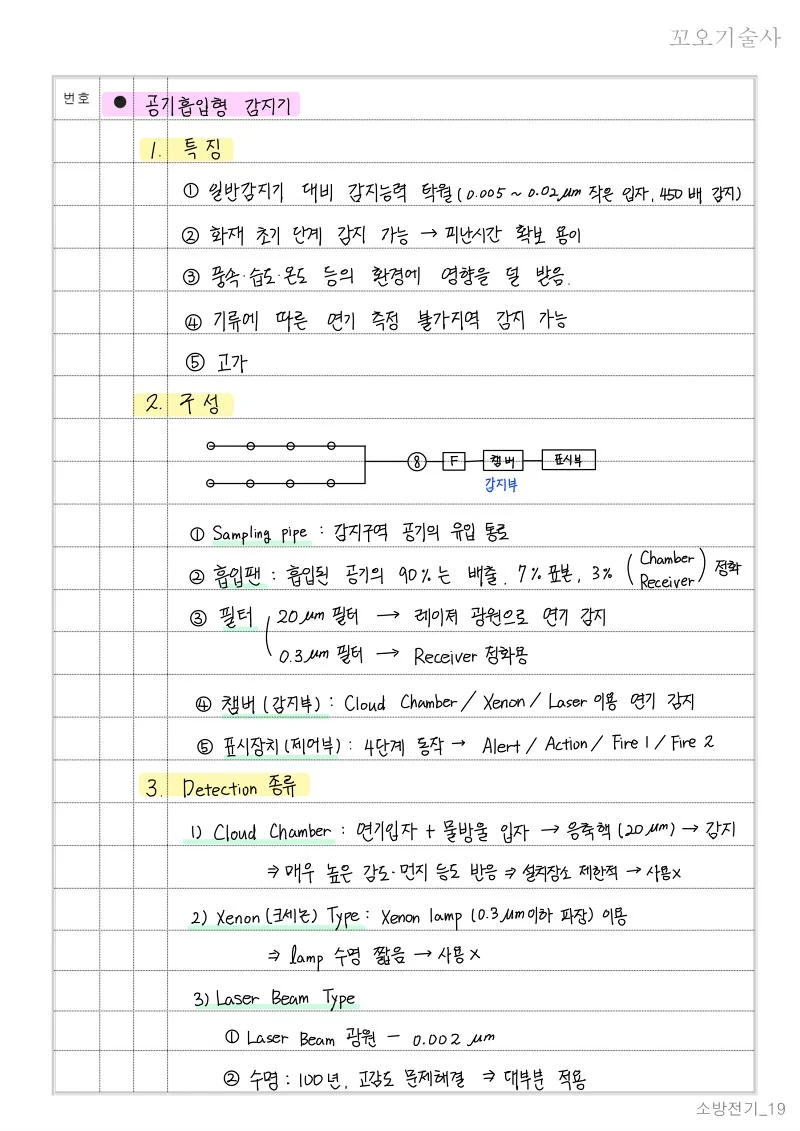 꼬오기술사
번호
● 공기흡입형 감지기
1. 특징
① 일반감지기 대비 감지능력 탁월 (0.005 ~ 0.02㎛ 작은 입자, 450배 감지)
② 화재 초기 단계 감지 가능 → 피난시간 확보 용이
③ 풍속·습도·온도 등의 환경에 영향을 덜 받음.
④ 기류에 따른 연기 측정 불가지역 감지 가능
⑤ 고가
2. 구성
8 F 챔버 표시부
감지부
① Sampling pipe : 감지구역 공기의 유입 통로
② 흡입팬 : 흡입된 공기의 90%는 배출, 7% 표본, 3% (Chamber
Receiver) 정화
③ 필터 20㎛ 필터 → 레이저 광원으로 연기 감지
0.3㎛ 필터 → Receiver 정화용
④ 챔버(감지부) : Cloud Chamber / Xenon / Laser 이용 연기 감지
⑤ 표시장치(제어부) : 4단계 동작 → Alert / Action / Fire 1 / Fire 2
3. Detection 종류
1) Cloud Chamber : 연기입자 + 물방울 입자 → 응축핵 (20㎛) → 감지
⇒ 매우 높은 감도·먼지 등도 반응 ⇒ 설치장소 제한적 → 사용x
2) Xenon(크세논) Type : Xenon lamp (0.3㎛이하 파장) 이용
⇒ lamp 수명 짧음 → 사용x
3) Laser Beam Type
① Laser Beam 광원 - 0.002 ㎛
② 수명 : 100년, 고감도 문제해결 ⇒ 대부분 적용
소방전기_19